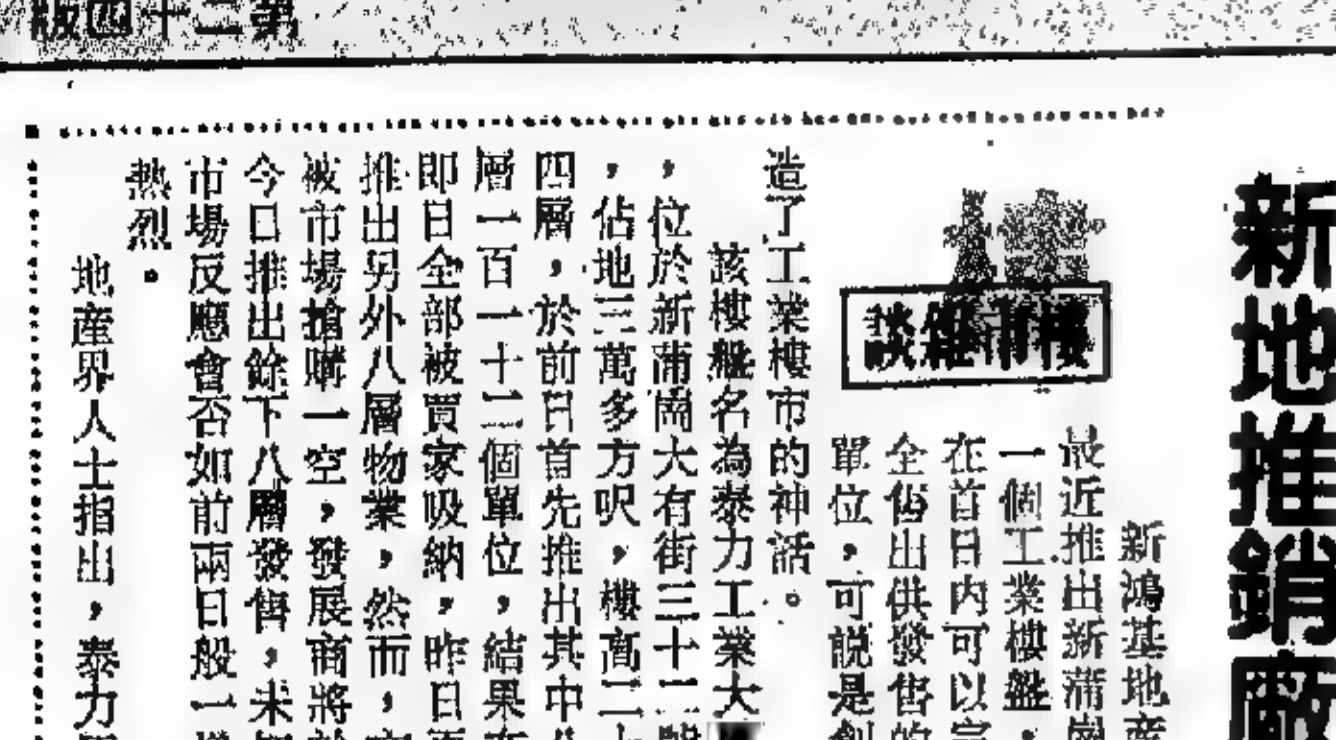 第二十四版
新地推銷廠
樓市雜談
新鴻基地產
最近推出新蒲崗
一個工業樓盤,
在首日內可以完
全售出供發售的
單位,可説是創
造了工業樓市的神話。
該樓盤名為泰力工業大
,位於新蒲崗大有街三十二號
,佔地三萬多方呎,樓高二十
四層,於前日首先推出其中八
層一百一十二個單位,結果在
即日全部被買家吸納,昨日再
推出另外八層物業,然而,
被市場搶購一空,發展商將於
今日推出餘下八層發售,未知
市場反應會否如前兩日般一樣
熱烈。
地產界人士指出,泰力